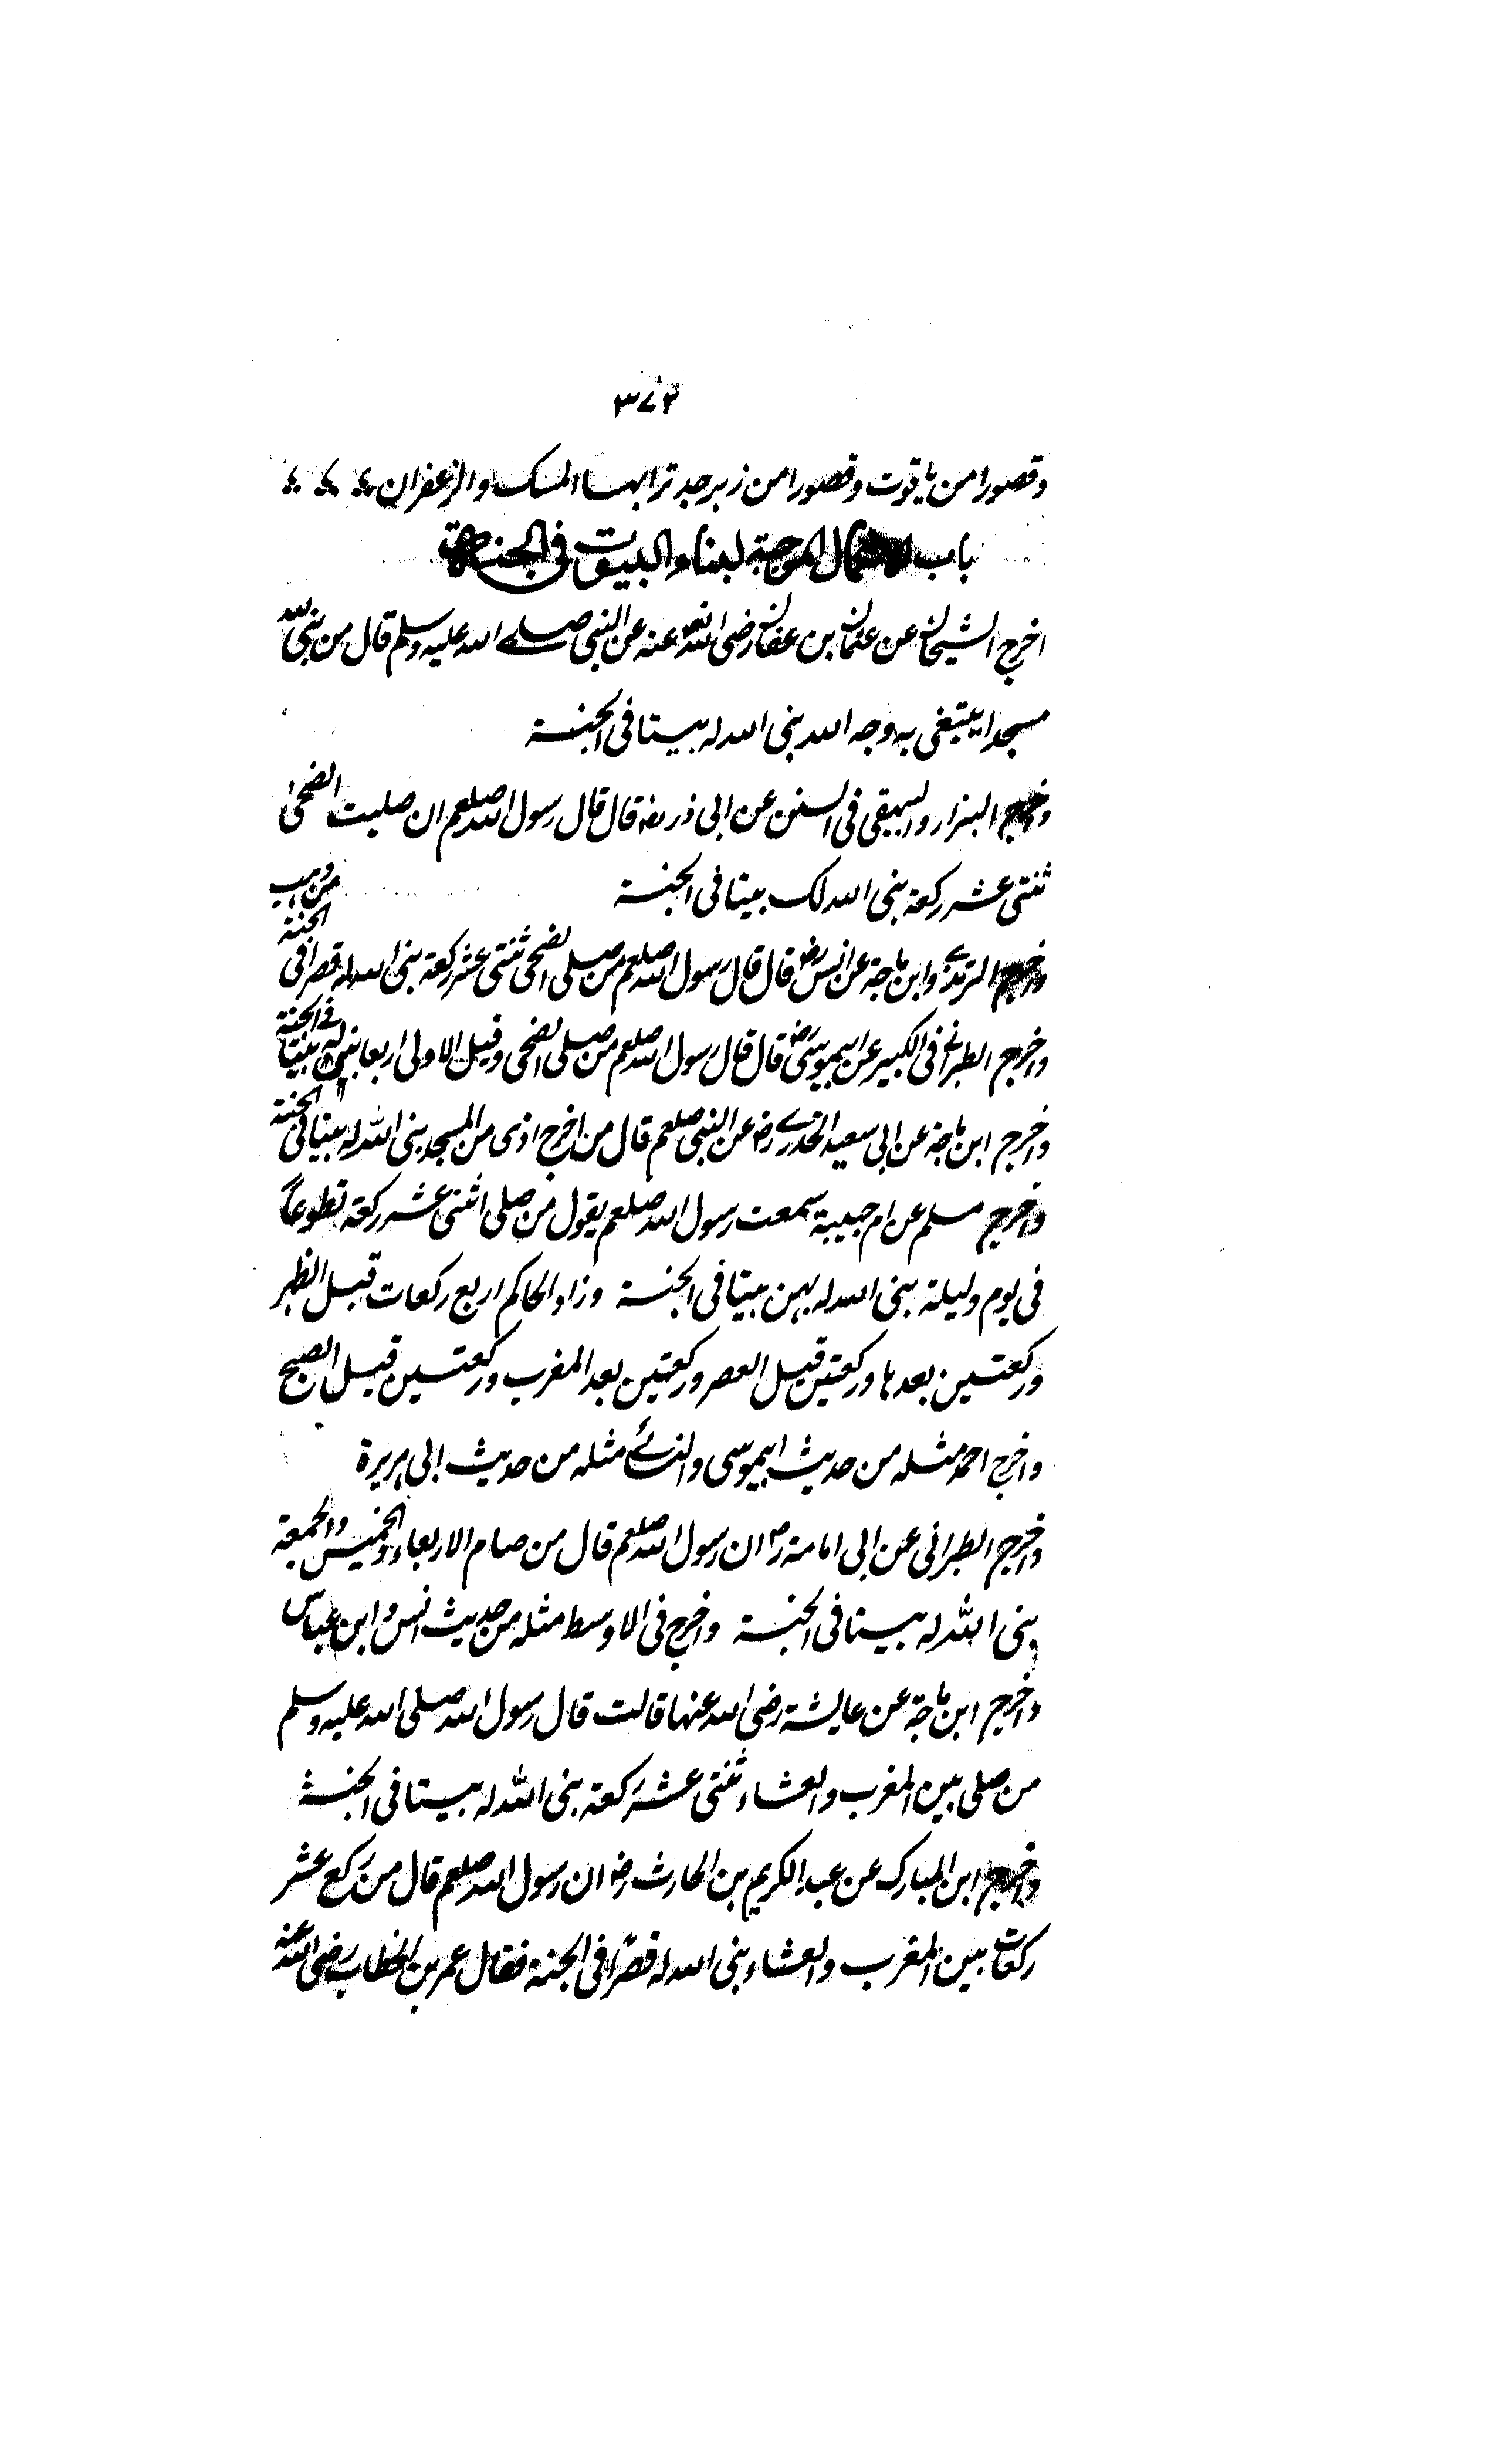 ٣٧٢
وقصورا من ياقوت وقصورا من زبرجد ترابها المسك والزعفران
باب الاعمال الموجبة لبناء البيوت فى الجنة
اخرج الشيخان عن عثمان بن عفان رضى الله تعالى عنه عن النبى صلے الله عليه وسلم قال من بنى لله
مسجدا يبتغى به وجه الله بنى الله له بيتا فى الجنة
واخرج البزار والبيهقى فى السنن عن ابى ذر رضـ قال قال رسول الله صلعم ان صليت الضحىٰ
ثنتى عشر ركعة بنى الله لك بيتا فى الجنة
واخرج الترمذے وابن ماجة عن انس رضـ قال قال رسول الله صلعم من صلى الضحى ثنتى عشر ركعة بنى الله له قصرا فى الجنة من ذهب
واخرج الطبرانے فى الكبير عن ابيموسى رضـ قال قال رسول الله صلعم من صلى الضحى وقبل الاولى اربعا بنى له بيتا فے الجنة
واخرج ابن ماجة عن ابى سعيد الخدرے رضـ عن النبى صلعم قال من اخرج اذى من المسجد بنى الله له بيتا فى الجنة
واخرج مسلم عن ام حبيبة سمعت رسول الله صلعم يقول من صلى اثنتى عشر ركعة تطوعاً
فى يوم وليلة بنى الله له بهن بيتا فى الجنة وزاد الحاكم اربع ركعات قبل الظهر
وركعتين بعدها وركعتين قبل العصر وركعتين بعد المغرب وركعتين قبل الصبح
واخرج احمد مثله من حديث ابيموسى والنسائے مثله من حديث ابى هريرة
واخرج الطبرانى عن ابى امامة رضـ ان رسول الله صلعم قال من صام الاربعاء والخميس والجمعة
بنى الله له بيتا فى الجنة واخرج فى الاوسط مثله من حديث انس و ابن عباس
واخرج ابن ماجة عن عايشة رضى الله عنها قالت قال رسول الله صلى الله عليه وسلم
من صلى بين المغرب والعشاء ثنتى عشر ركعة بنى الله له بيتا فى الجنة
واخرج ابن المبارك عن عبد الكريم بن الحارث رضـ ان رسول الله صلعم قال من ركع عشر
ركعات بين المغرب والعشاء بنى الله له قصرًا فى الجنة فقال عمر بن الخطاب رضى الله عنه